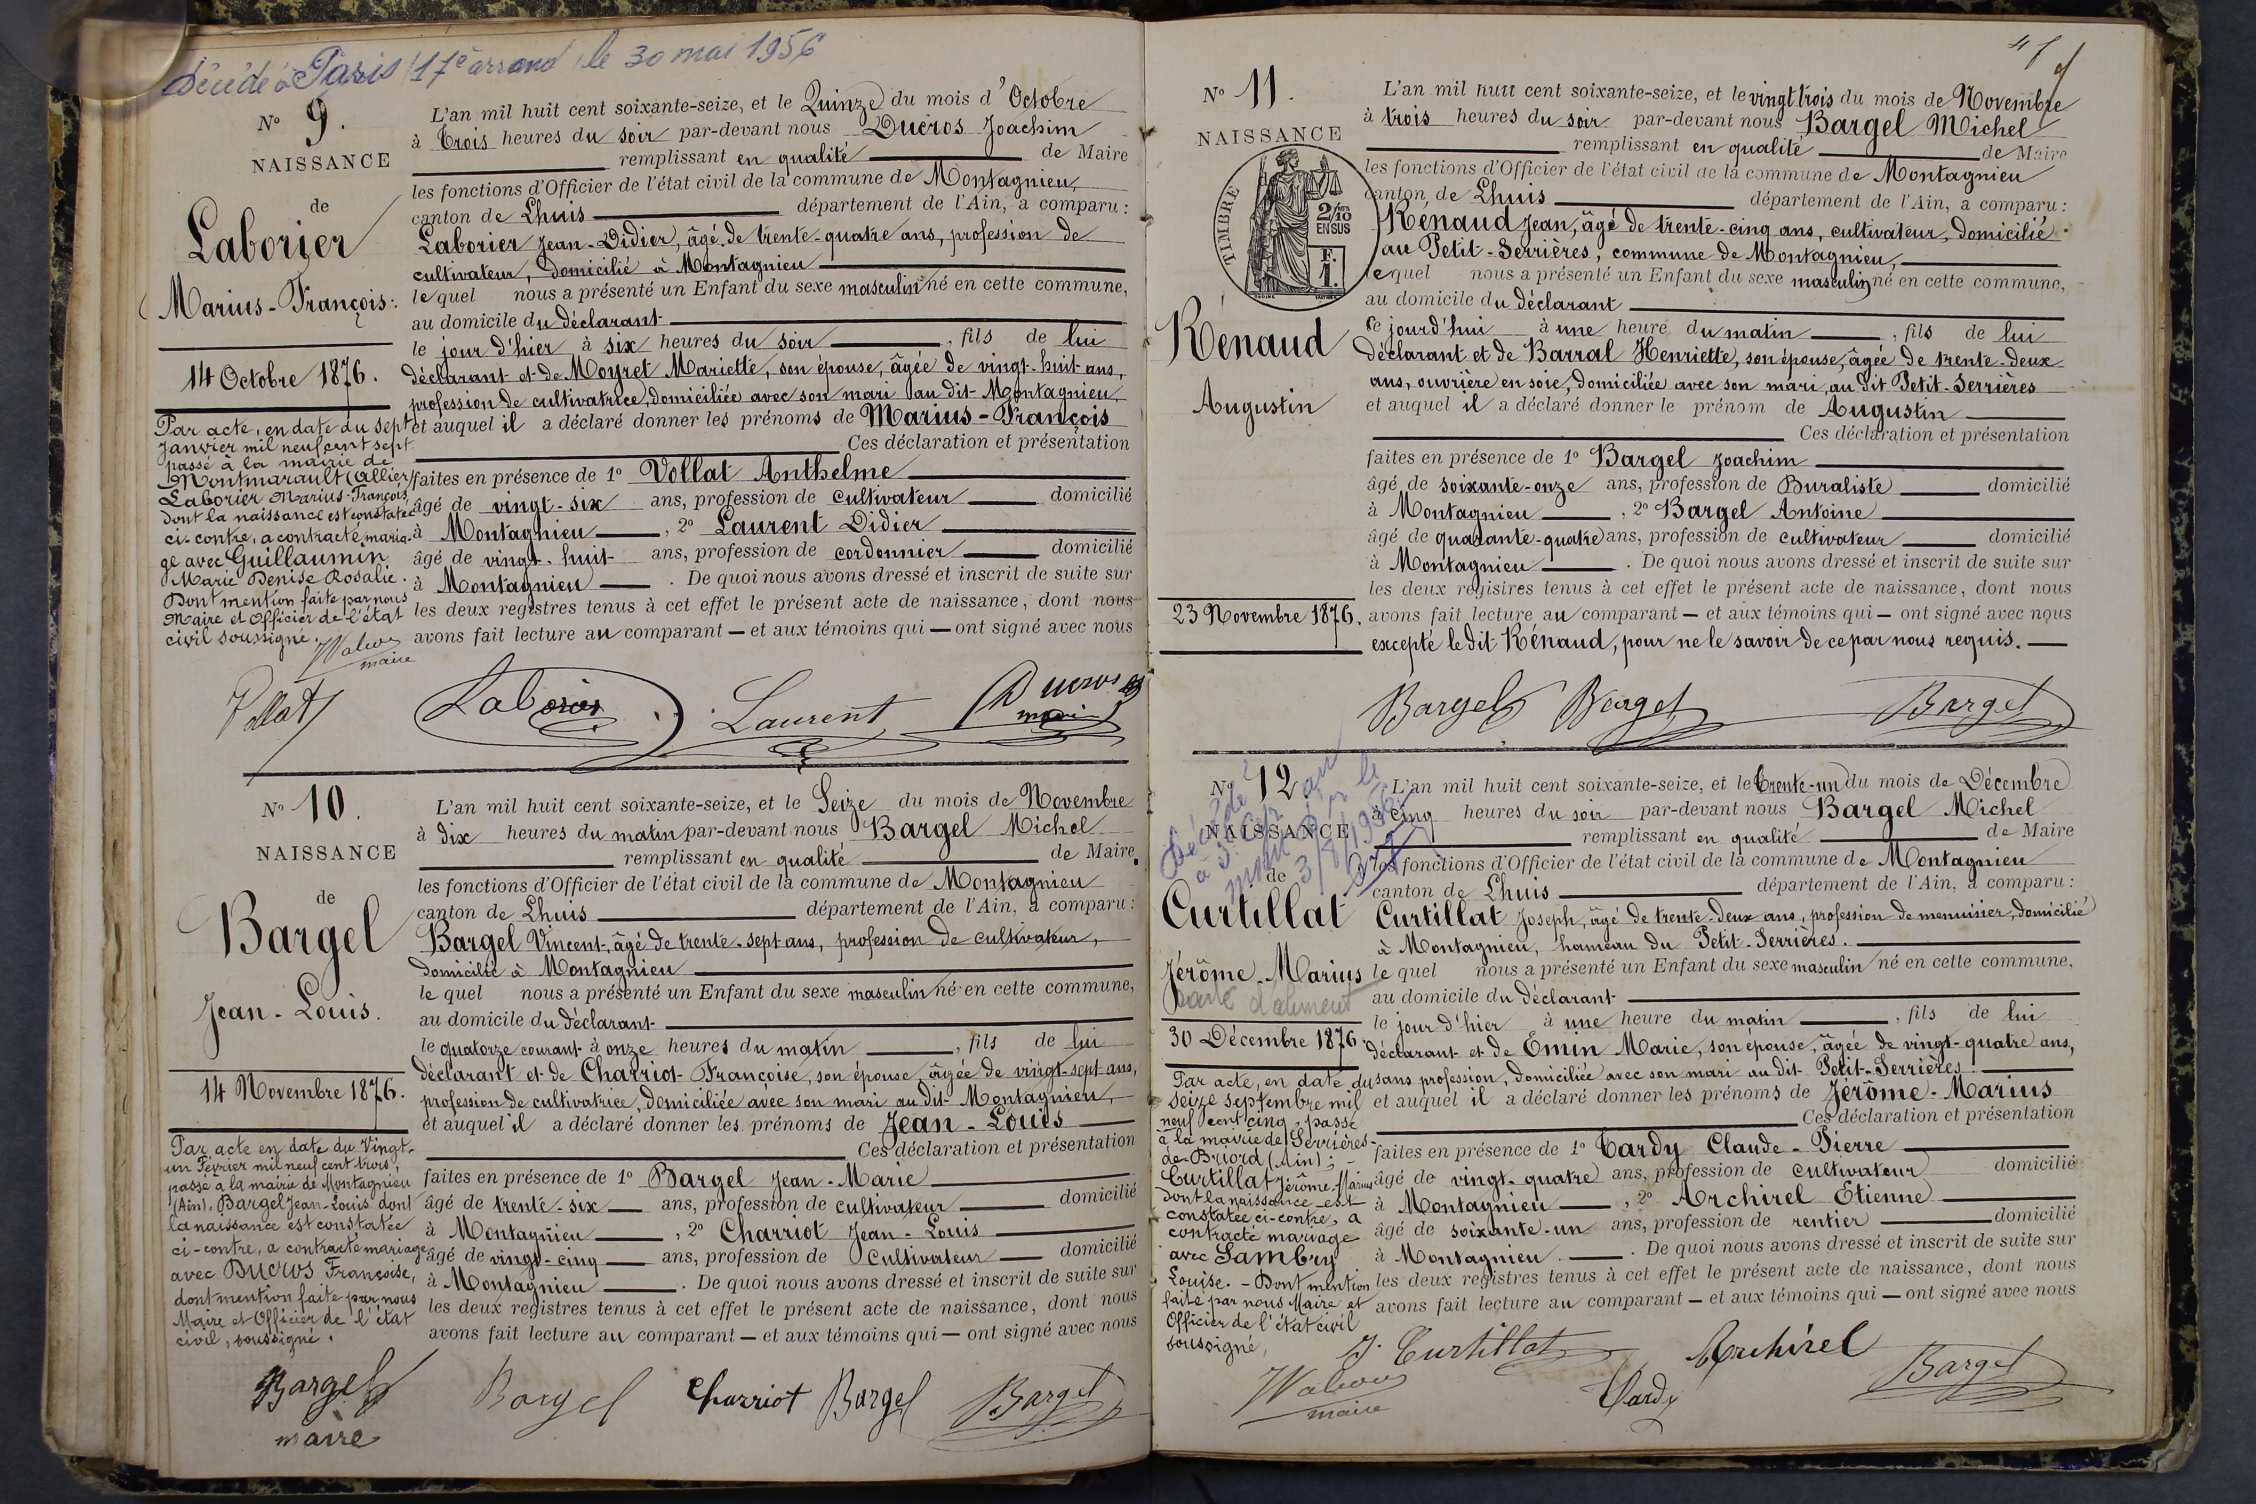 Décédé à Paris 17e arrond le 30 mai 1956
N° 9.
NAISSANCE
de
Laborier
Marius-François.
14 Octobre 1876.
Par acte, en date du sept
Janvier mil neuf cent sept
passé à la mairie de
Montmarault (Allier)
Laborier Marius-François
dont la naissance est constatée
ci-contre, a contracté maria-
ge avec Guillaumin
Marie Denise Rosalie.
Dont mention faite par nous
Maire et Officier de l'état
civil soussigné.
maire
L'an mil huit cent soixante-seize, et le Quinze du mois d'Octobre
à Trois heures du soir par-devant nous Ducros Joachim
remplissant en qualité de Maire
les fonctions d'Officier de l'état civil de la commune de Montagnieu,
canton de Lhuis département de l'Ain, a comparu :
Laborier Jean-Didier, âgé de trente-quatre ans, profession de
cultivateur, domicilié à Montagnieu
lequel nous a présenté un Enfant du sexe masculin né en cette commune,
au domicile du déclarant
le jour d'hier à six heures du soir , fils de lui
déclarant et de Moyret Mariette, son épouse, âgée de vingt-huit ans,
profession de cultivatrice, domiciliée avec son mari au dit Montagnieu
et auquel il a déclaré donner les prénoms de Marius-François
Ces déclaration et présentation
faites en présence de 1° Vollat Anthelme
âgé de vingt-six ans, profession de cultivateur domicilié
à Montagnieu , 2° Laurent Didier
âgé de vingt-huit ans, profession de cordonnier domicilié
à Montagnieu . De quoi nous avons dressé et inscrit de suite sur
les deux registres tenus à cet effet le présent acte de naissance, dont nous
avons fait lecture au comparant — et aux témoins qui — ont signé avec nous
Vollat Laborier Laurent Ducros
maire
N° 10.
NAISSANCE
de
Bargel
Jean-Louis.
14 Novembre 1876.
Par acte en date du Vingt-
un Février mil neuf cent trois,
passé à la mairie de Montagnieu
(Ain), Bargel Jean-Louis dont
la naissance est constatée
ci-contre, a contracté mariage
avec Ducros Françoise,
dont mention faite par nous
Maire et Officier de l'état
civil, soussigné.
L'an mil huit cent soixante-seize, et le Seize du mois de Novembre
à dix heures du matin par-devant nous Bargel Michel
remplissant en qualité de Maire
les fonctions d'Officier de l'état civil de la commune de Montagnieu
canton de Lhuis département de l'Ain, a comparu :
Bargel Vincent, âgé de trente-sept ans, profession de cultivateur,
domicilié à Montagnieu
lequel nous a présenté un Enfant du sexe masculin né en cette commune,
au domicile du déclarant
le quatorze courant à onze heures du matin , fils de lui
déclarant et de Charriot Françoise, son épouse, âgée de vingt-sept ans,
profession de cultivatrice, domiciliée avec son mari au dit Montagnieu,
et auquel il a déclaré donner les prénoms de Jean-Louis
Ces déclaration et présentation
faites en présence de 1° Bargel Jean-Marie
âgé de trente-six ans, profession de cultivateur domicilié
à Montagnieu , 2° Charriot Jean-Louis
âgé de vingt-cinq ans, profession de cultivateur domicilié
à Montagnieu . De quoi nous avons dressé et inscrit de suite sur
les deux registres tenus à cet effet le présent acte de naissance, dont nous
avons fait lecture au comparant — et aux témoins qui — ont signé avec nous
Bargel Bargel Charriot Bargel Bargel
maire
N° 11.
NAISSANCE
TIMBRE
2/10 EN SUS
F. 1.
Rénaud
Augustin
23 Novembre 1876.
L'an mil huit cent soixante-seize, et le vingt trois du mois de Novembre
à trois heures du soir par-devant nous Bargel Michel
remplissant en qualité de Maire
les fonctions d'Officier de l'état civil de la commune de Montagnieu
canton de Lhuis département de l'Ain, a comparu :
Rénaud Jean, âgé de trente-cinq ans, cultivateur, domicilié
au Petit-Serrières, commune de Montagnieu,
lequel nous a présenté un Enfant du sexe masculin né en cette commune,
au domicile du déclarant
ce jourd'hui à une heure du matin , fils de lui
déclarant et de Barral Henriette, son épouse, âgée de trente-deux
ans, ouvrière en soie, domiciliée avec son mari, au dit Petit-Serrières
et auquel il a déclaré donner le prénom de Augustin
Ces déclaration et présentation
faites en présence de 1° Bargel Joachim
âgé de soixante-onze ans, profession de Buraliste domicilié
à Montagnieu , 2° Bargel Antoine
âgé de quarante-quatre ans, profession de cultivateur domicilié
à Montagnieu . De quoi nous avons dressé et inscrit de suite sur
les deux registres tenus à cet effet le présent acte de naissance, dont nous
avons fait lecture au comparant — et aux témoins qui — ont signé avec nous
excepté le dit Rénaud, pour ne le savoir de ce par nous requis.
Bargel Bargel Bargel
N° 12
NAISSANCE
de
Décédé
3/8/1956
Curtillat
Jérôme-Marius
30 Décembre 1876.
Par acte, en date du
seize septembre mil
neuf cent cinq, passé
à la mairie de Serrières-
de-Briord (Ain), -
Curtillat Jérôme-Marius
dont la naissance est
constatée ci-contre, a
contracté mariage
avec Sambry
Louise. - Dont mention
faite par nous Maire et
Officier de l'état civil
soussigné,
maire
L'an mil huit cent soixante-seize, et le Trente-un du mois de Décembre
à cinq heures du soir par-devant nous Bargel Michel
remplissant en qualité de Maire
les fonctions d'Officier de l'état civil de la commune de Montagnieu
canton de Lhuis département de l'Ain, a comparu :
Curtillat Joseph, âgé de trente-deux ans, profession de menuisier, domicilié
à Montagnieu, hameau du Petit-Serrières.
lequel nous a présenté un Enfant du sexe masculin né en cette commune,
au domicile du déclarant
le jour d'hier à une heure du matin , fils de lui
déclarant et de Emin Marie, son épouse, âgée de vingt-quatre ans,
sans profession, domiciliée avec son mari au dit Petit-Serrières
et auquel il a déclaré donner les prénoms de Jérôme-Marius
Ces déclaration et présentation
faites en présence de 1° Tardy Claude-Pierre
âgé de vingt-quatre ans, profession de cultivateur domicilié
à Montagnieu , 2° Archirel Etienne
âgé de soixante-un ans, profession de rentier domicilié
à Montagnieu . De quoi nous avons dressé et inscrit de suite sur
les deux registres tenus à cet effet le présent acte de naissance, dont nous
avons fait lecture au comparant — et aux témoins qui — ont signé avec nous
J. Curtillat Archirel
Tardy Bargel